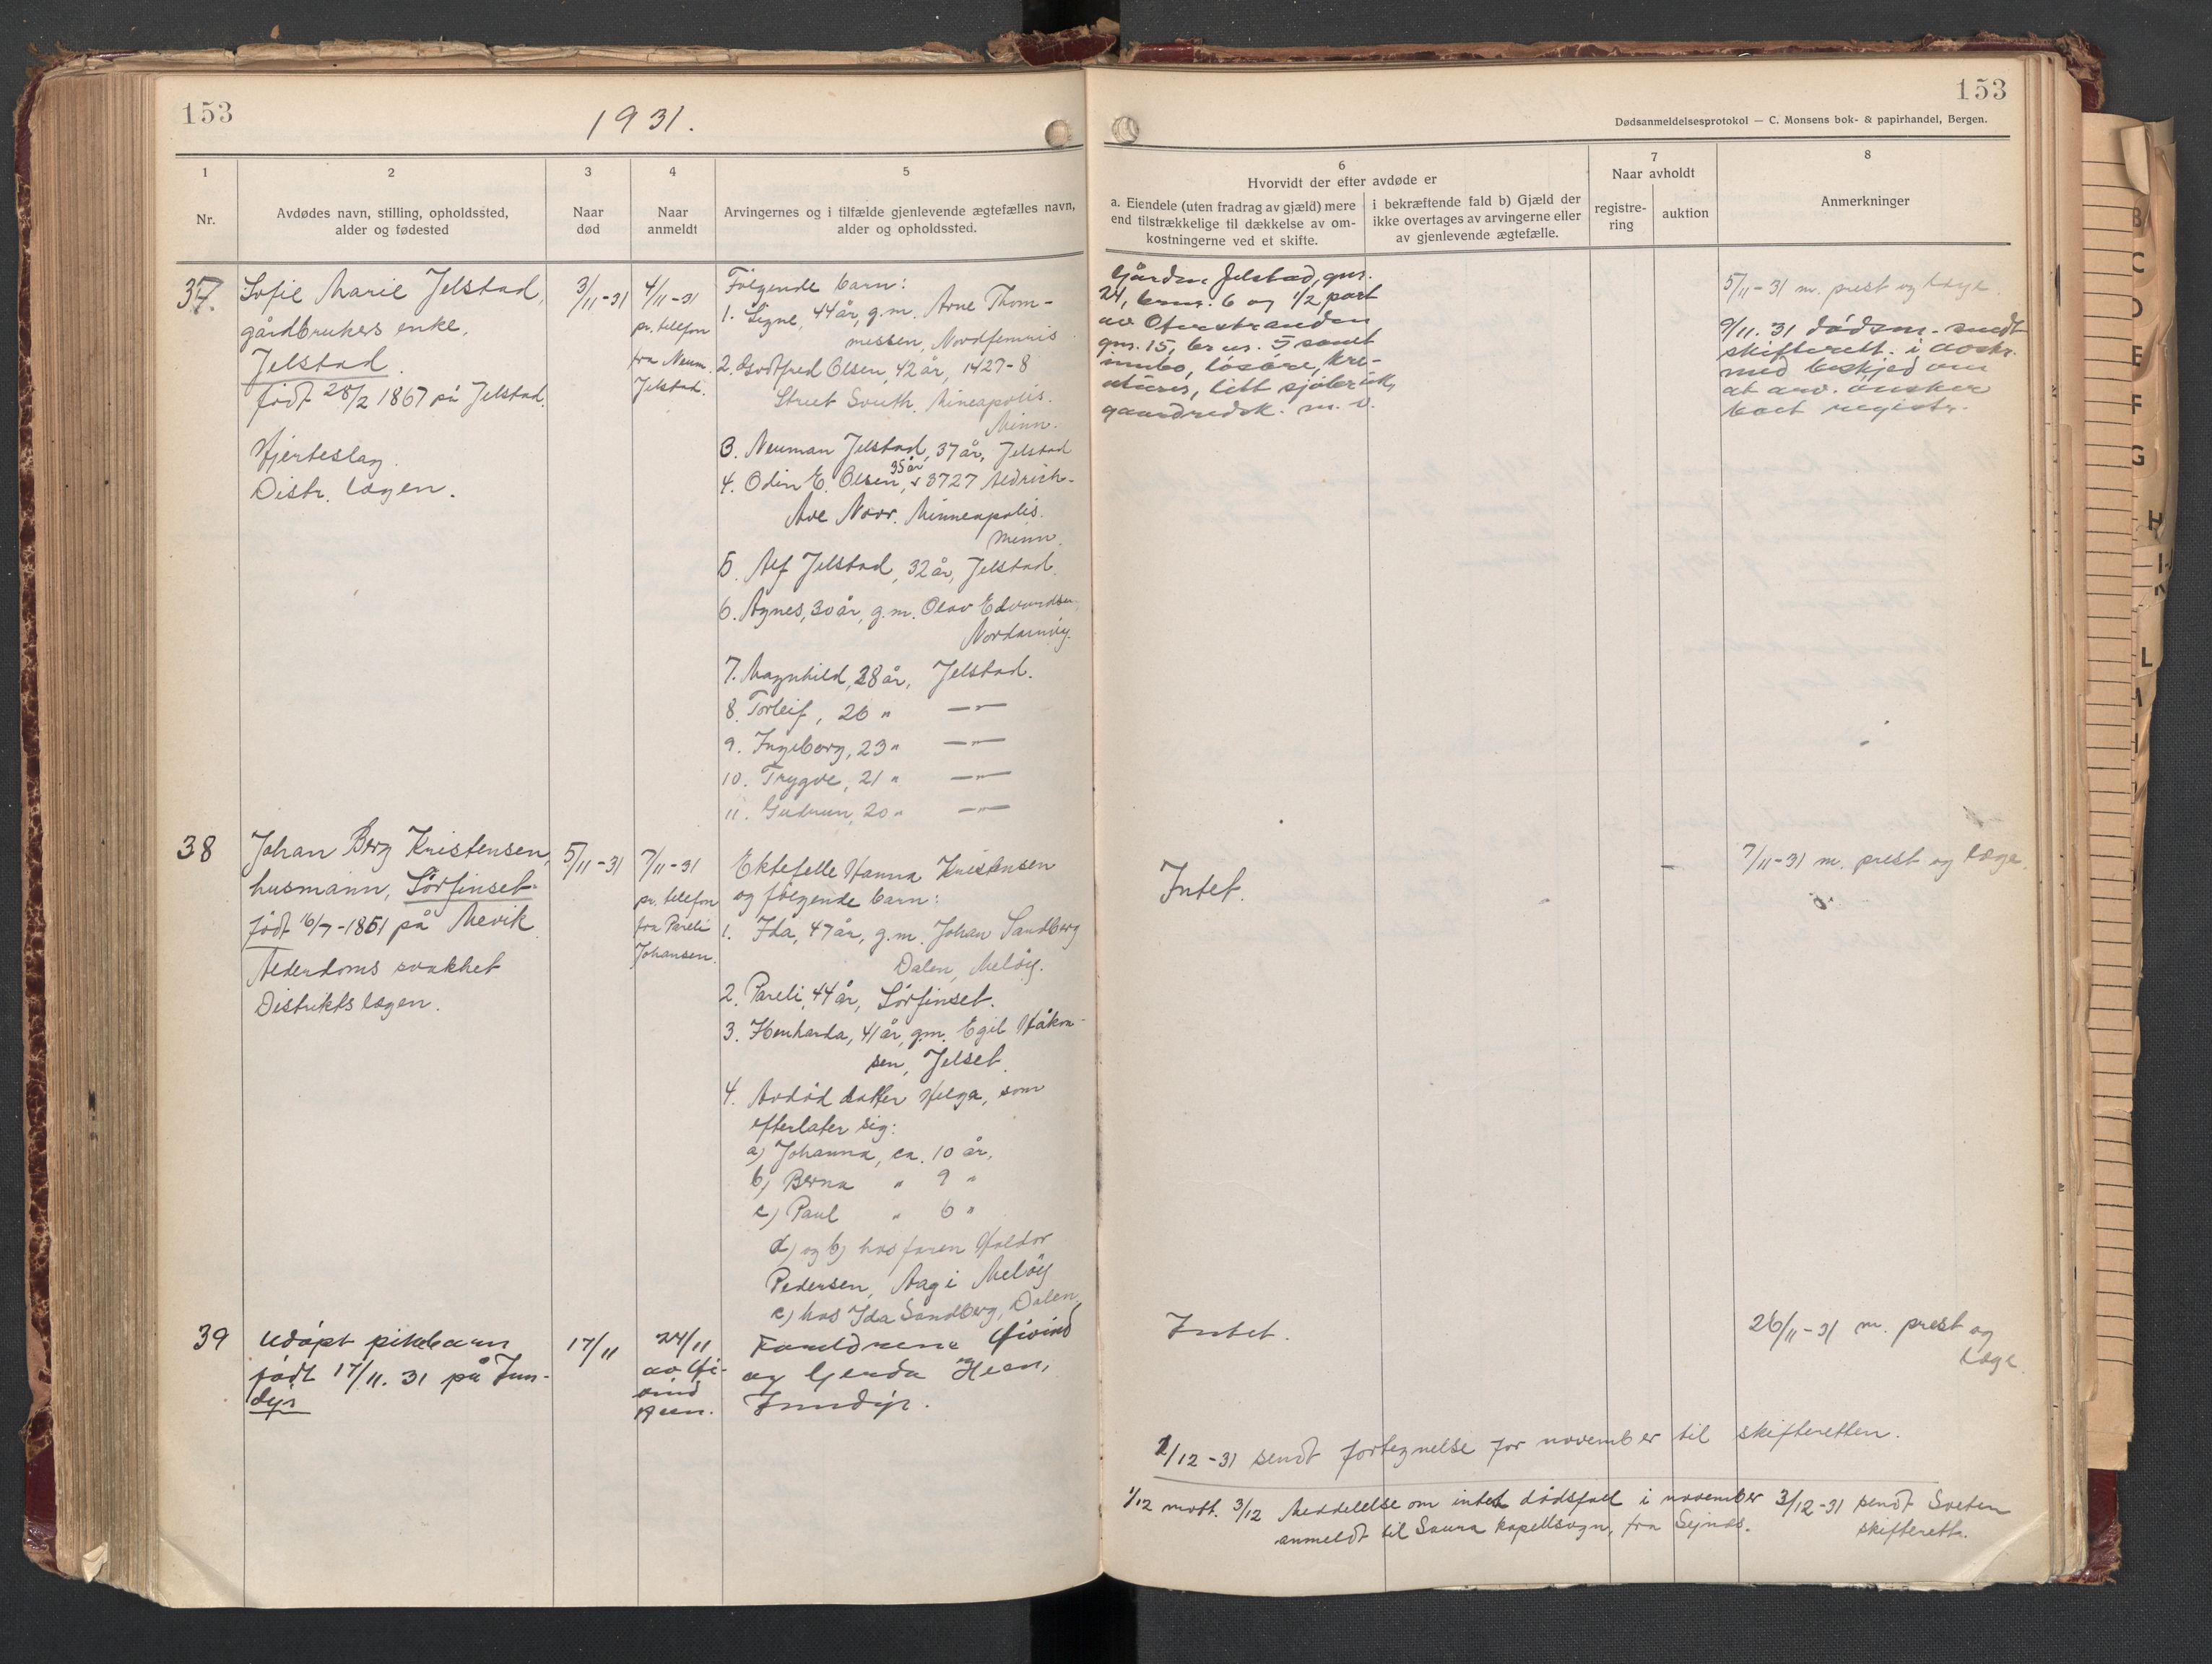 153
1931.
1
2
3
4
5
Nr.
Avdødes navn, stilling, opholdssted,
alder og fødested
Naar
død
Naar
anmeldt
Arvingernes og i tilfælde gjenlevende ægtefælles navn,
alder og opholdssted.
37.
Sofie Marie Jelstad,
gårdbrukers enke,
Jelstad.
født 28/2 1867 på Jelstad.
Hjerteslag.
Distr. lægen.
3/11-31
4/11-31
pr. telefon
fra Neum.
Jelstad.
Følgende barn:
1. Signe, 44 år, g.m. Arne Thom-
messen, Nordfemris
2. Godtfred Olsen, 42 år, 1427-8
Street South. Mineapolis.
Minn.
3. Neuman Jelstad, 37 år, Jelstad
35 år
4. Odin E. Olsen, 3727 Aldrich-
Ave Norr. Minneapolis.
Minn.
5. Alf Jelstad, 32 år, Jelstad.
6. Agnes, 30 år, g.m. Olav Edvardsen
Nordarnøy.
7. Magnhild, 28 år, Jelstad.
8. Torleif, 26 " —"—
9. Ingeborg, 23 " —"—
10. Trygve, 21 " —"—
11. Gudrun, 20 " —"—
38
Johan Berg Kristensen,
husmann, Sörfinset
født 16/7-1851 på Mevik
Alderdoms svakhet
Distriktslægen.
5/11-31
7/11-31
pr. telefon
fra Pareli
Johansen.
Ektefelle Hanna Kristensen
og følgende barn:
1. Ida, 47 år, g.m. Johan Sandberg
Dalen, Meløy.
2. Pareli, 44 år, Sörfinset.
3. Henharda, 41 år, g.m. Egil Håkon-
sen, Jelset.
4. Avdød datter Helga, som
efterlater sig:
a) Johanna, ca. 10 år,
b) Berna " 9 "
c) Paul " 6 "
a) og b) hos faren Haldor
Pedersen, Aag i Meløy
c) hos Ida Sandberg, Dalen.
39
Udøpt pikebarn
født 17/11. 31 på Inn-
dyr
17/11
24/11
av Øi-
vind
Heen.
Foreldrene Øivind
og Gerda Heen,
Inndyr.
153
Dødsanmeldelsesprotokol — C. Monsens bok- & papirhandel, Bergen.
6
Hvorvidt der efter avdøde er
a. Eiendele (uten fradrag av gjæld) mere
end tilstrækkelige til dækkelse av om-
kostningerne ved et skifte.
i bekræftende fald b) Gjæld der
ikke overtages av arvingerne eller
av gjenlevende ægtefælle.
7
Naar avholdt
registre-
ring
auktion
8
Anmerkninger
Gården Jelstad, gnr.
24, brnr. 6 og 1/2 part
av Oterstranden
gnr. 15, br nr. 5 samt
innbo, løsøre, kre-
aturer, litt sjöbruk,
gaardredsk. m. v.
5/11-31 m. prest og læge.
9/11. 31 dødsm. sendt
skifterett. i avskr.
med beskjed om
at arv. ønsker
boet registr.
Intet.
7/11-31 m. prest og læge.
Intet.
26/11-31 m. prest og
læge.
2/12-31 sendt fortegnelse for november til skifteretten.
1/12 mott. 3/12 Meddelelse om intet dödsfall i november 3/12-31 sendt Salten
anmeldt til Saura kapellsogn, fra Sejnæs. skifterett.
B
C
D
E
F
G
H
L